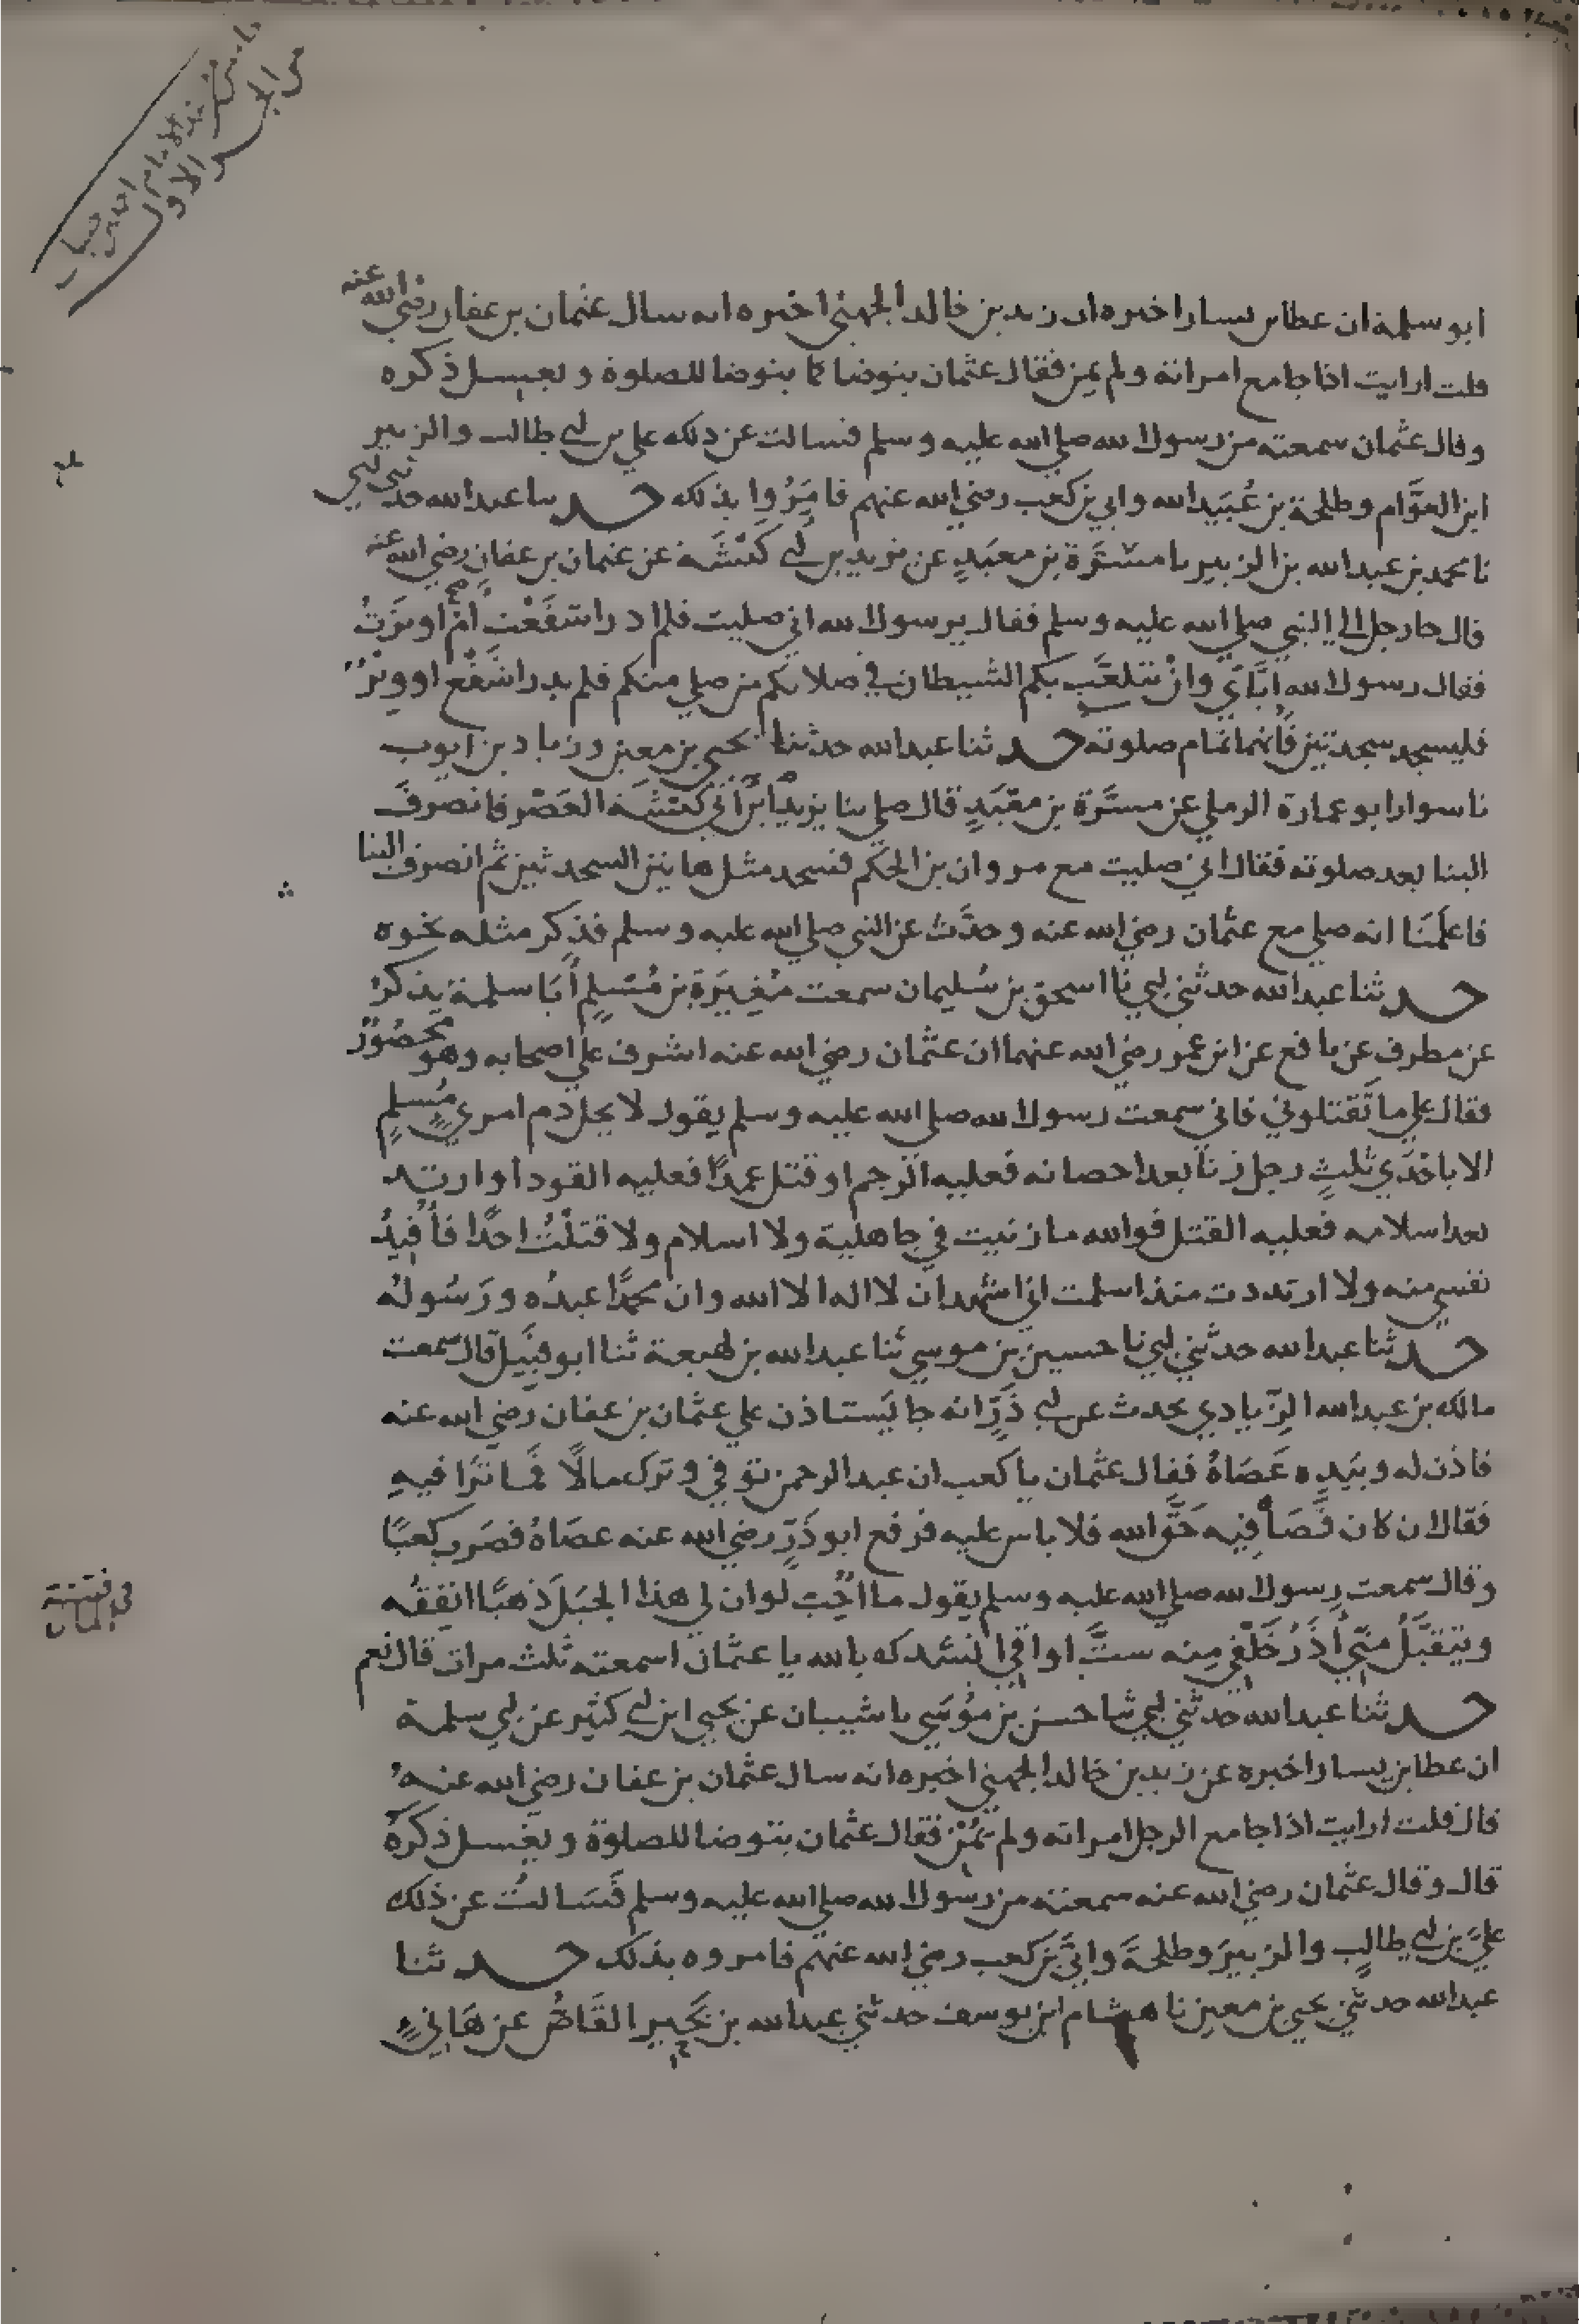 من الجزء الاول
ابو سلمة ان عطا بن يسار اخبره ان زيد بن خالد الجهني اخبره انه سال عثمان بن عفان رضي الله عنه
قلت ارايت اذا جامع امراته ولم يمن فقال عثمان يتوضا كما يتوضا للصلوة ويغسل ذكره
وقال عثمان سمعته من رسول الله صلي الله عليه وسلم فسالت عن ذلك علي بن ابي طالب والزبير
ابن العوَّام وطلحة بن عُبَيد الله وابي بن كعب رضي الله عنهم فامَرُوا بذلك حدثنا عبدالله حدثني ابي
نا محمد بن عبدالله بن الزبير نا مسَرَّة بن معبَدٍ عن يزيد بن ابي كَبْشَة عن عثمان بن عفان رضي الله عنه
قال جا رجل الي النبي صلي الله عليه وسلم فقال يرسول الله اني صليت فلم ادر اشَفَعْت اَمْ اوتَرْتُ
فقال رسول الله اِيَّايَ وانْ يتلعَّب بكم الشيطان في صلاتكم من صلي منكم فلم يدر اشَفَع او وِتْرٌ
فليسجد سجدتين فانهما تمام صلوته حدثنا عبدالله حدثنا يحيي بن معين وزياد بن ايوب
نا سوار ابو عمارة الرملي عن مسَرَّة بن مَعْبَدٍ قال صلي بنا يزيد ابن ابي كبشَة العَصْر فانصرفَ
الينا بعد صلوته فقال اني صليت مع مروان بن الحكَم فسجد مثل هاتين السجدتين ثم انصرف الينا
فاعلَمَنا انه صلي مع عثمان رضي الله عنه وحدَّث عن النبي صلي الله عليه وسلم فذكر مثله نحوه
حدثنا عبدالله حدثني ابي نا اسحق بن سُليمان سمعت مُغِيرَة بن مُسْلِمٍ اَبَا سلمة يذكرُ
عن مطرف عن نافع عن ابن عمر رضي الله عنهما ان عثمان رضي الله عنه اشرف علي اصحابه وهو محصُورٌ
فقال علي ما تَقتلوني فاني سمعت رسول الله صلي الله عليه وسلم يقول لا يحل دم امريٍ مُسلمٍ
الا باحْدَي ثلثٍ رجل زنا بعد احصانه فعليه الرجم او قتل عمدًا فعليه القود او ارتد
بعد اسلامه فعليه القتل فوالله ما زنيت في جاهلية ولا اسلام ولا قتلْتُ احدًا فاُقيدُ
نفسي منه ولا ارتددت منذ اسلمت اني اشهد ان لا اله الا الله وان محمدًا عبدُه ورَسُولهُ
حدثنا عبدالله حدثني ابي نا حسين بن موسي ثنا عبدالله بن لهيعة ثنا ابو قبِيل قال سمعت
مالك بن عبدالله الزِّيادي يحدث عن ابي ذَرٍّ انه جا يَستاذن علي عثمان بن عفان رضي الله عنه
فاذن له وبيَدِه عَصَاهُ فقال عثمان يا كعب ان عبد الرحمن توفي وترك مالًا فما ترَا فيهِ
فقال ان كان قَضَا فِيه حَقَّ الله فلا باس عليه فرفع ابو ذَرٍّ رضي الله عنه عصَاهُ فضَرب كعبًا
وقال سمعت رسول الله صلي الله عليه وسلم يقول ما اُحِبُّ لو ان لي هذا الجبَل ذهبًا انفقُه
ويتقبَّلُ مني اَذَرُ خَلْفي منه ستَّ اواقي انشدك بالله يا عثمان اسمعته ثلث مرات قال نعم
حدثنا عبدالله حدثني ابي ثنا حسن بن مُوسَي نا شيبان عن يحيي ابن ابي كثير عن ابي سلمة
ان عطا بن يسار اخبره عن زيد بن خالد الجهني اخبره انه سال عثمان بن عفان رضي الله عنه
قال قلت ارايت اذا جامع الرجل امراته ولم يُمْنِ فقال عثمان يتوضا للصلوة ويغسل ذكرهُ
قال وقال عثمان رضي الله عنه سمعته من رسول الله صلي الله عليه وسلم فَسَالتُ عن ذلك
عليَّ بن ابي طالب والزبيرَ وطلحةَ وابيَّ بن كعب رضي الله عنهم فامروه بذلك حدثنا
عبدالله حدثني يحيي بن معين نا هشام ابن يوسف حدثني عبدالله بن بَحِير القَاصُّ عن هَانيٍ